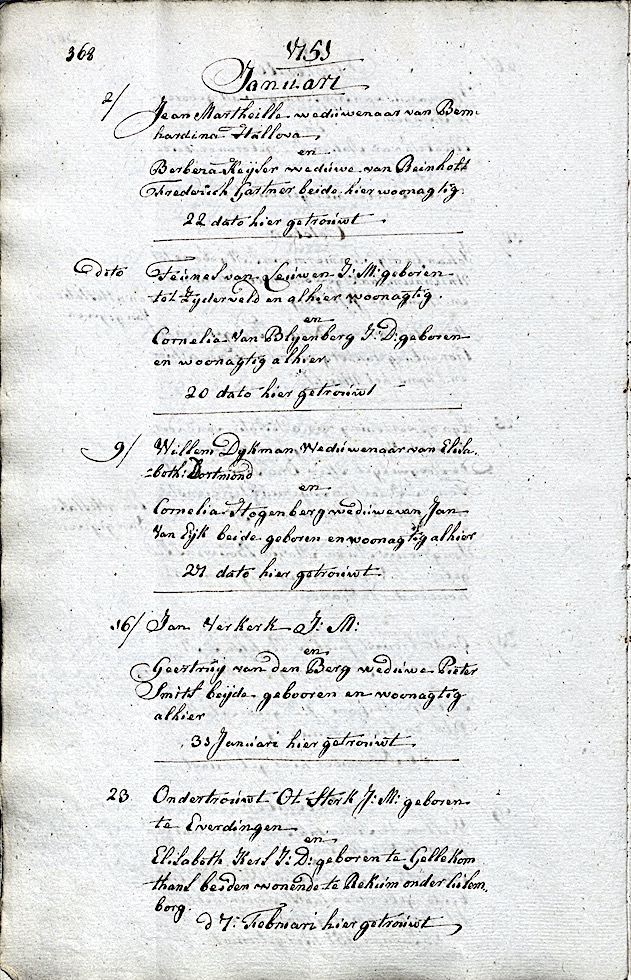 368
1751
Januari
2/ Jean Martheille weduwenaar van Bern
hardina Hallova
en
Berbera Keijser weduwe van Reinholt
Frederick Gartner beide hier woonagtig
22 dato hier getrouwt
dito Teunes van Leuwen J: M: geboren
tot Zijderveld en alhier woonagtig.
en
Cornelia Van Blyenberg J: D: geboren
en woonagtig alhier
20 dato hier getrouwt
9/ Willem Dykman Weduwenaar van Elisa
beth: Dortmond
en
Cornelia Hogenberg weduwe van Jan
Van Eijk beide geboren en woonagtig alhier
21 dato hier getrouwt
16/ Jan Verkerk J: M:
en
Geertruij van den Berg weduwe Pieter
Smitt beijde gebooren en woonagtig
alhier
31 Januari hier getrouwt
23 Ondertrouwt Ot Sterk J: M: geboren
te Everdingen
en
Elisabeth Kers J: D: geboren te Gellekom
thans beiden wonende te Rekum onder Culem
borg
d 7: Februari hier getrouwt